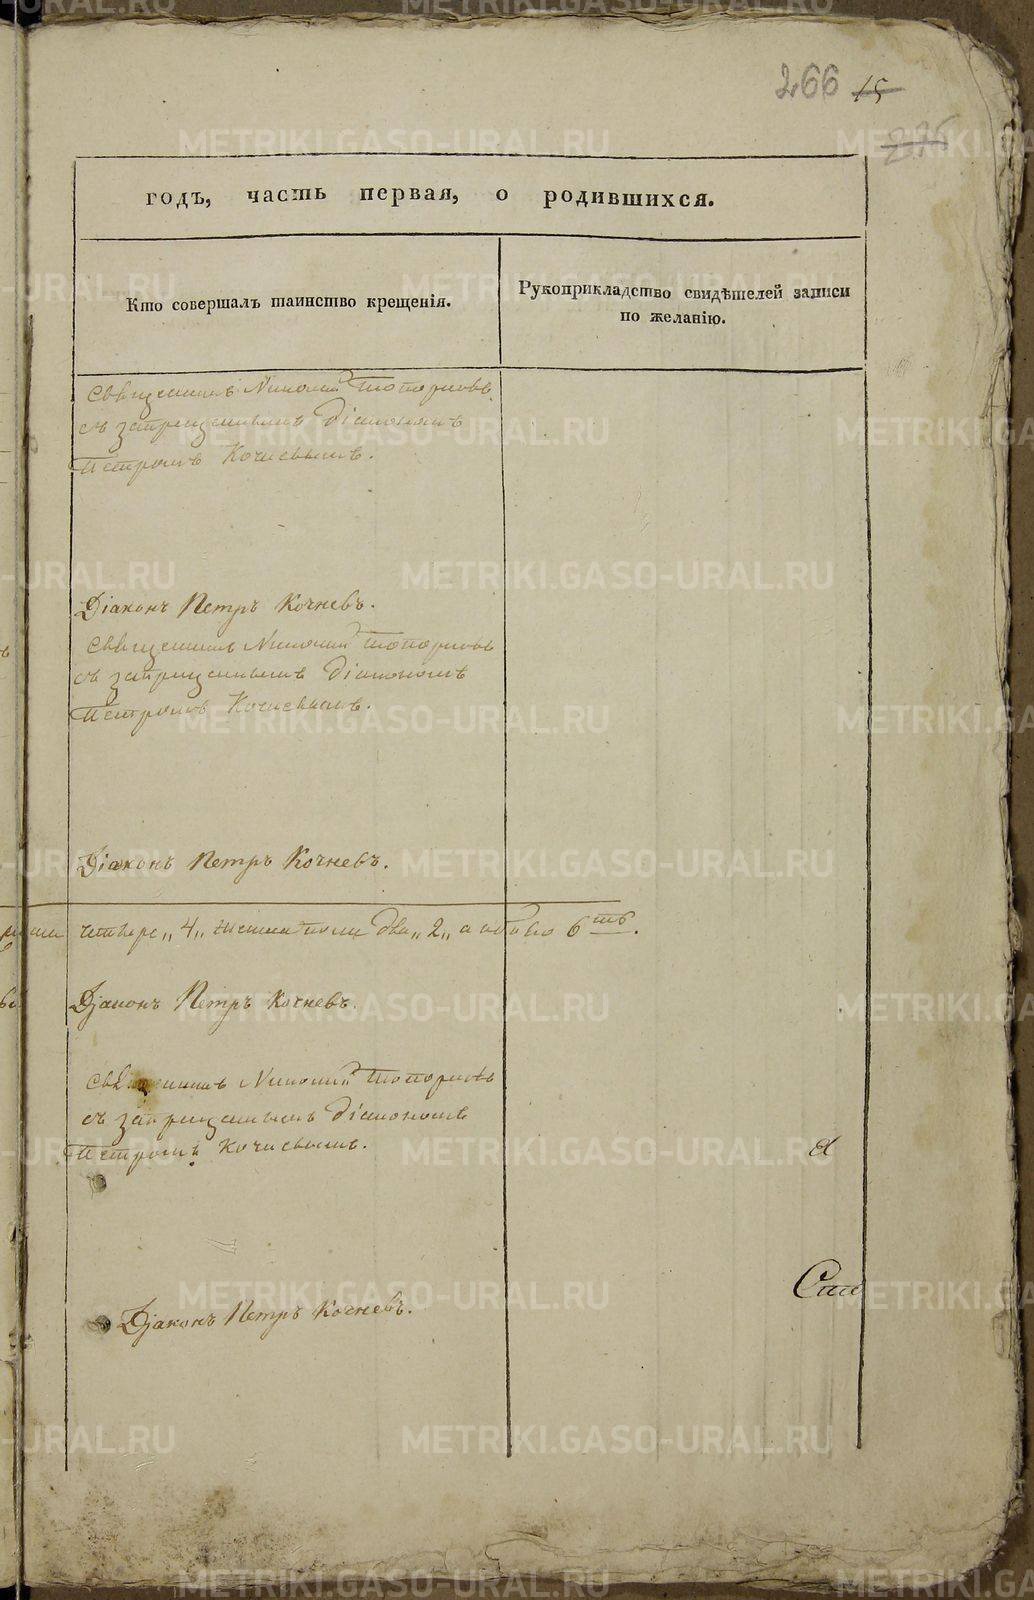 266 15
годъ, часть первая, о родившихся.
Кто совершалъ таинство крещенія.
Рукоприкладство свидѣтелей записи
по желанію.
Священникъ Николай Топорковъ
съ запрещеннымъ Діакономъ
Петромъ Кочневымъ.
Діаконъ Петръ Кочневъ.
Священникъ Николай Топорковъ
съ запрещеннымъ Діакономъ
Петромъ Кочневымъ.
Діаконъ Петръ Кочневъ.
четыре „4„ женска пола два „2„ а обоего 6ть.
Діаконъ Петръ Кочневъ.
Священникъ Николай Топорковъ
съ запрещеннымъ Діакономъ
Петромъ Кочневымъ.
Діаконъ Петръ Кочневъ.
METRIKI.GASO-URAL.RU